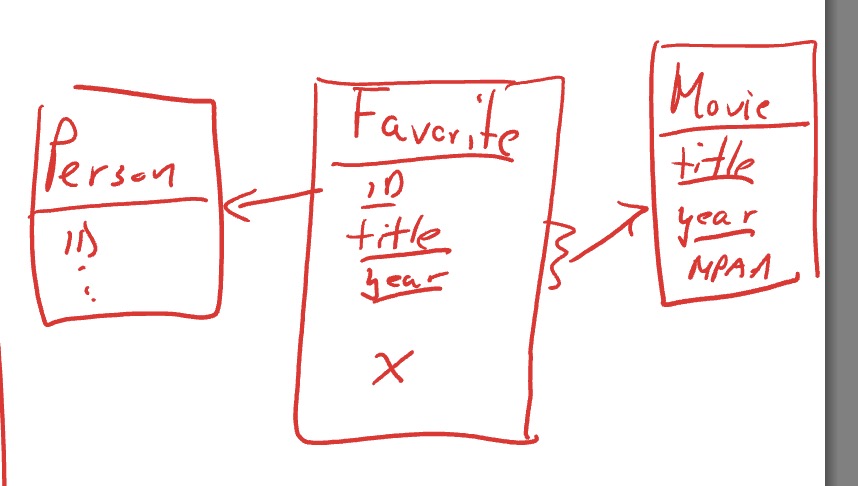 Person
ID
⋮
Favorite
ID
title
year
X
Movie
title
year
MPAA